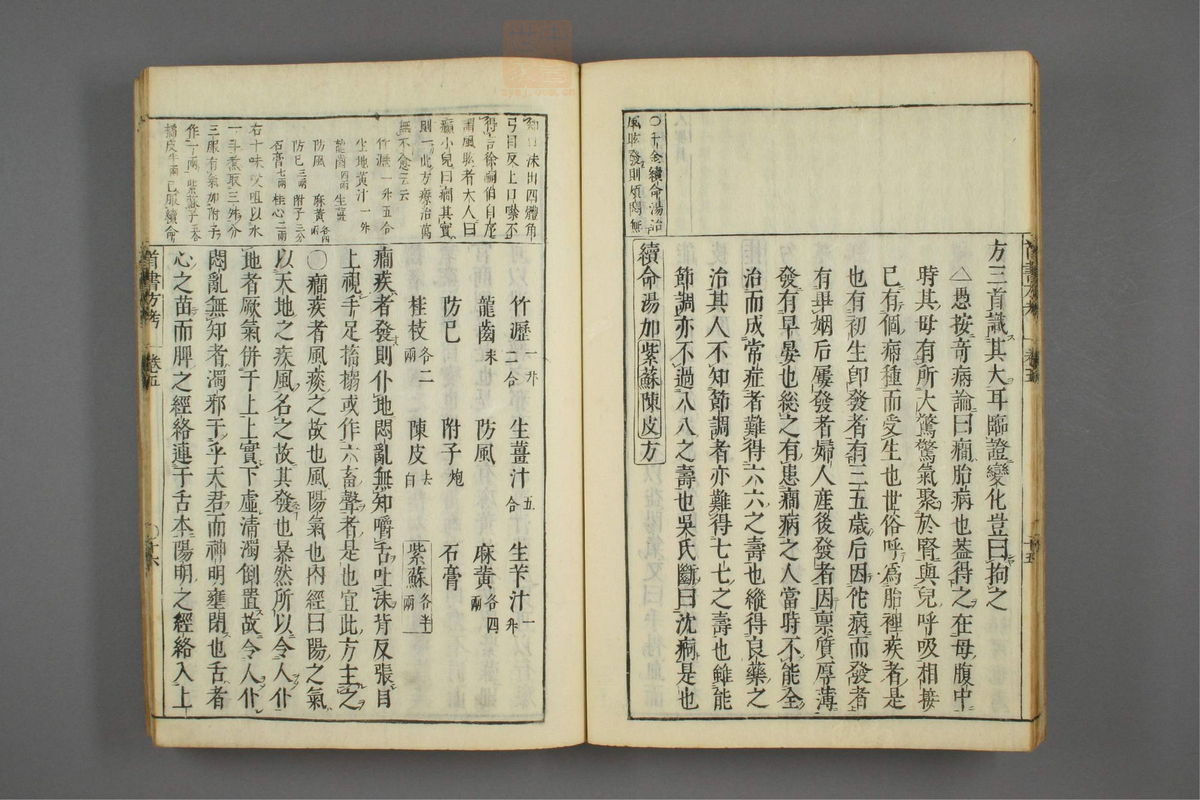 方三首識其大耳臨證變化豈曰拘之
△愚按奇病論曰癇胎病也蓋得之在母腹中
時其母有所大驚驚氣聚於腎與兒呼吸相接
已有個病種而受生也世俗呼為胎裡疾者是
也有初生即發者有三五歲后因佗病而發者
有畢姻后屡發者婦人産後發者因禀質厚薄
發有早晏也總之有患癇病之人當時不能全
治而成常症者難得六六之壽也縱得良藥之
治其人不知節調者亦難得七七之壽也雖能
節調亦不過八八之壽也吳氏斷曰沈痾是也
續命湯加紫蘇陳皮方
○千金續命湯治
風眩發則煩悶無
知口沫出四體角
弓目反上口噤不
得言徐嗣伯自序
謂風眩者大人曰
癲小兒曰癇其實
則一此方療治萬
無不愈云云
竹瀝一升五合
生地黃汁一升
龍齒四兩 生薑
防風 麻黃各四兩
防已三兩 附子三分
石膏七兩 桂心二兩
右十味㕮咀以水
一斗煮取三升分
三服有氣加附子
作一兩紫蘇子一合
橘皮半兩已服續命
竹瀝一升二合 生薑汁五合 生苄汁一升
龍齒末 防風 麻黃各四兩
防巳 附子炮 石膏
桂枝各二兩 陳皮去白 紫蘇各半兩
癇疾者發則仆地悶亂無知嚼舌吐沫背反張目
上視手足搐搦或作六畜聲者是也宜此方主之
○癇疾者風痰之故也風陽氣也內經曰陽之氣
以天地之疾風名之故其發也暴然所以令人仆
地者厥氣併于上上實下虛清濁倒置故令人仆
悶亂無知者濁邪干乎天君而神明壅閉也舌者
心之苗而脾之經絡連于舌本陽明之經絡入上
首書方考 卷五 〇十六